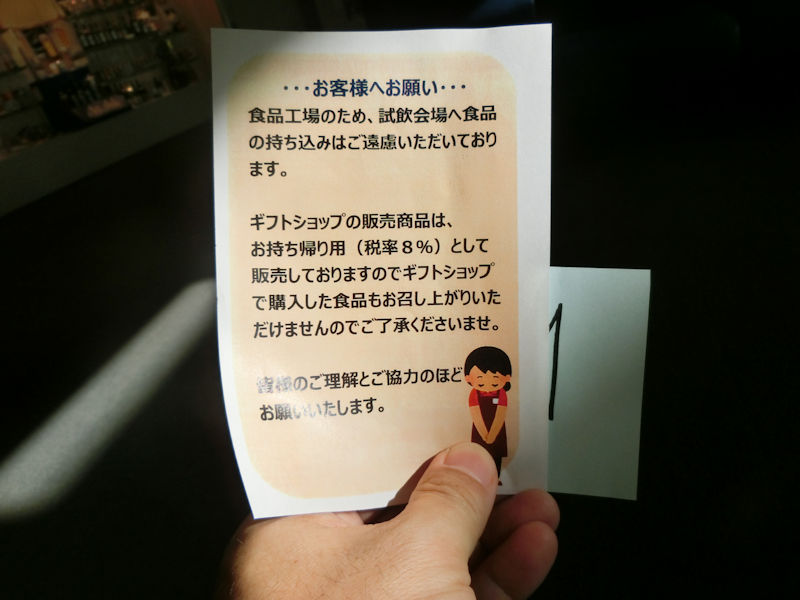 ・・・お客様へお願い・・・
食品工場のため、試飲会場へ食品
の持ち込みはご遠慮いただいており
ます。
ギフトショップの販売商品は、
お持ち帰り用（税率８％）として
販売しておりますのでギフトショップ
で購入した食品もお召し上がりいた
だけませんのでご了承くださいませ。
皆様のご理解とご協力のほど
お願いいたします。
1